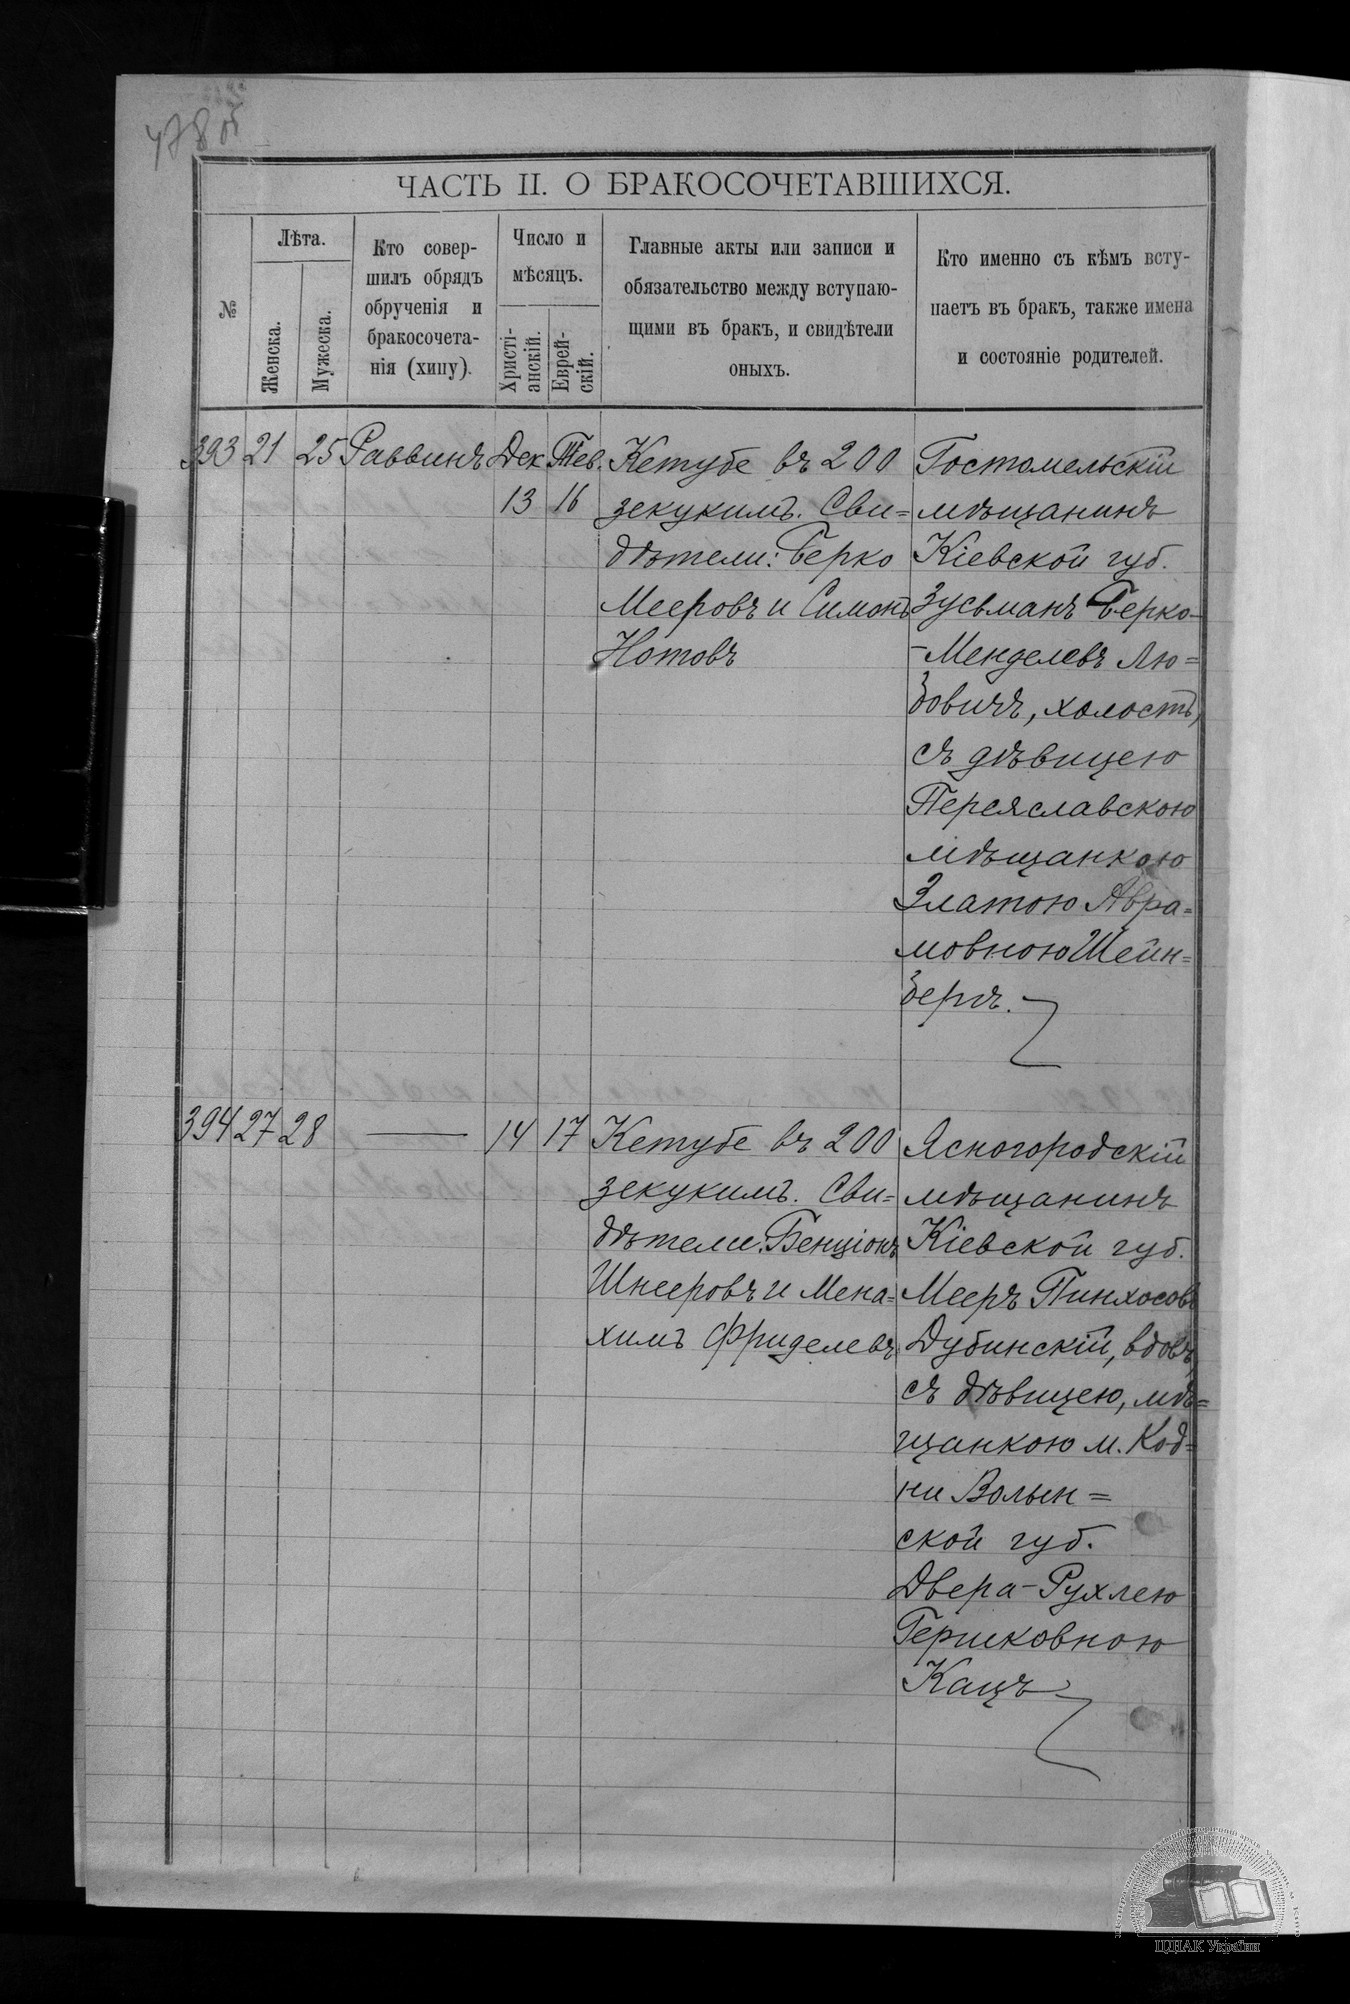 478 об
ЧАСТЬ II. О БРАКОСОЧЕТАВШИХСЯ.
№
Лѣта.
Женска.
Мужеска.
Кто совер-
шилъ обрядъ
обрученія и
бракосочета-
нія (хипу).
Число и
мѣсяцъ.
Христі-
анскій.
Еврей-
скій.
Главные акты или записи и
обязательство между вступаю-
щими въ бракъ, и свидѣтели
оныхъ.
Кто именно съ кѣмъ всту-
паетъ въ бракъ, также имена
и состояніе родителей.
393 21 25 Раввинъ Дек Тев.
13 16
Кетубе въ 200
зекукимъ. Сви=
дѣтели: Берко
Мееровъ и Симонъ
Нотовъ
Гостомельскій
мѣщанинъ
Кіевской губ.
Зусьманъ Берко-
-Менделевъ Лю=
бовичъ, холостъ,
съ дѣвицею
Переяславскою
мѣщанкою
Златою Авра=
мовною Шейн=
бергъ.
394 27 28 — 14 17
Кетубе въ 200
зекукимъ. Сви=
дѣтели: Бенціонъ
Шнееровъ и Мена=
химъ Фриделевъ
Ясногородскій
мѣщанинъ
Кіевской губ.
Мееръ Пинхосовъ
Дубинскій, вдовъ,
съ дѣвицею, мѣ=
щанкою м. Код=
ни Волын=
ской губ.
Двера-Рухлею
Гершковною
Кацъ
ЦДІАК України